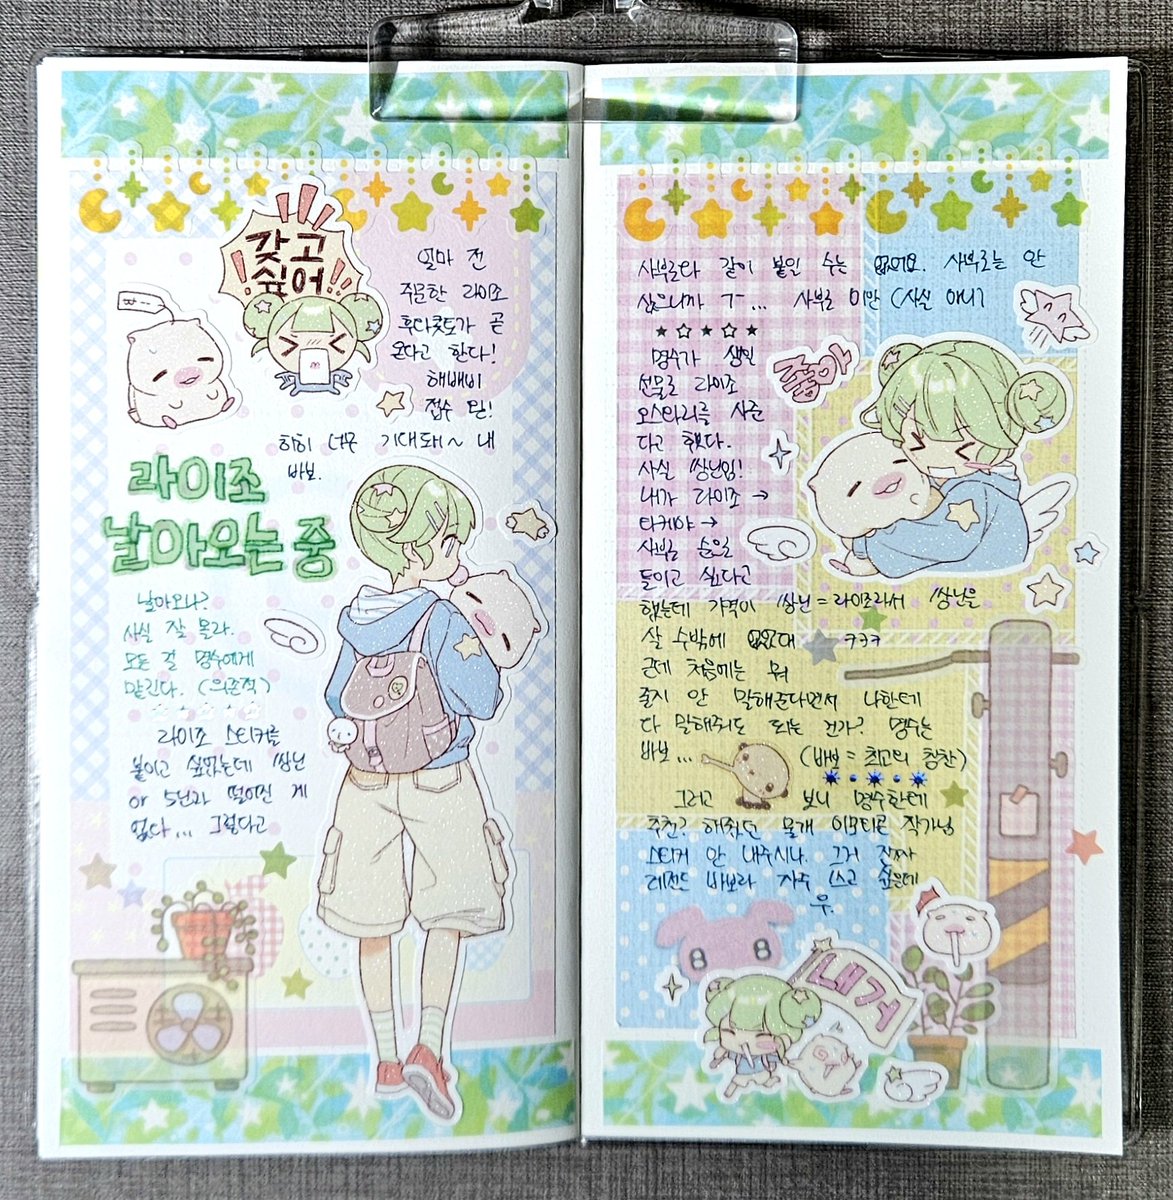 갖고
싶어!!
얼마 전
주문한 라이조
후다닥도가 곧
온다고 한다!
해배비
접수 됨!
히히 너무 기대돼~ 내
바보.
라이조
날아오는 중
날아오나?
사실 잘 몰라.
모든 걸 명수에게
맡긴다. (의존적)
라이조 스티커를
붙이고 싶었는데 쌍닌
or 5닌과 떨어진 게
없다... 그렇다고
사부로와 같이 붙일 수는 없어요. 사부로는 안
싫으니까 ㄱ-... 사부로 미안 (사실 애니
명수가 생일
선물로 라이조
오스타리를 사준
다고 했다.
사실 쌍닌임!
내가 라이조 →
타케야 →
사부로 순일
들이고 싶다고
했는데 가격이 쌍닌=라이조라서 쌍닌을
살 수밖에 없었대 ㅋㅋㅋ
근데 처음에는 뭐
줄지 안 말해준다면서 나한테
다 말해줘도 되는 건가? 명수는
바보... (바보=최고의 칭찬)
그러고 보니 명수한테
추천? 해줬던 물개 이모티콘 작가님
스티커 안 내주시나. 그거 진짜
레전드 바보라 자주 쓰고 싶은데
우.
좋아
내거